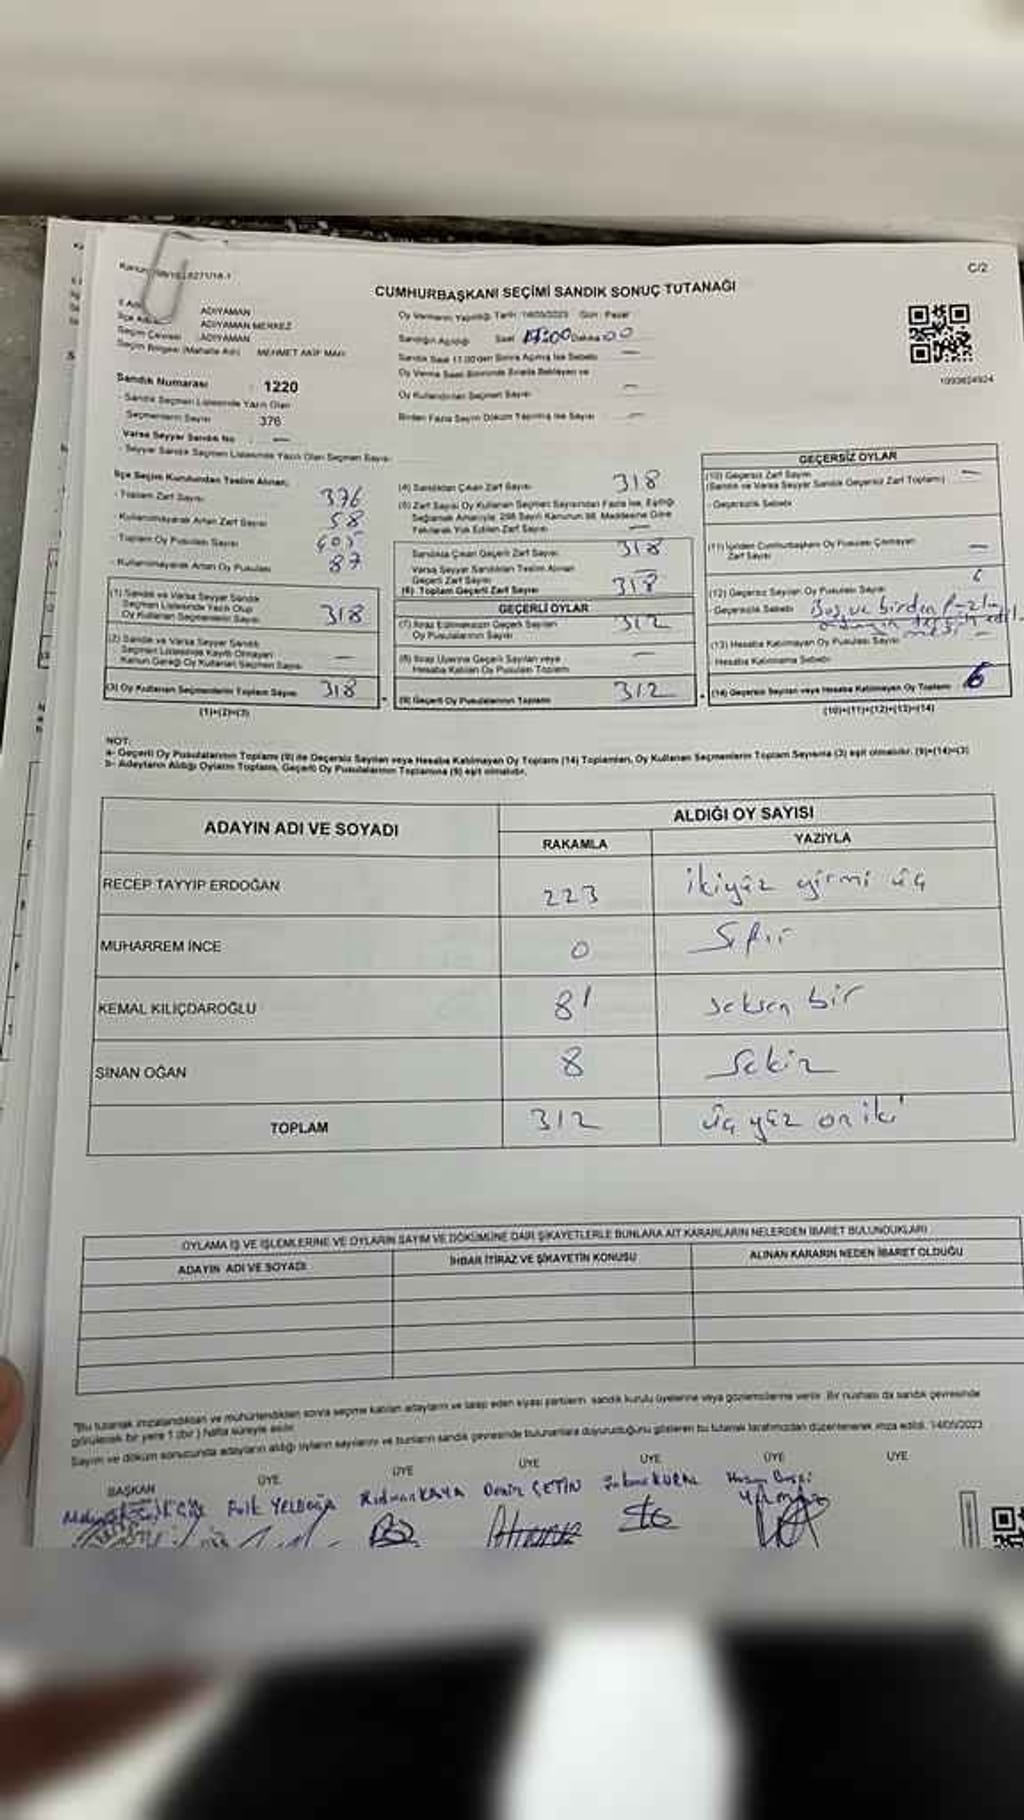 C/2
CUMHURBAŞKANI SEÇİMİ SANDIK SONUÇ TUTANAĞI
ADIYAMAN
ADIYAMAN MERKEZ
Seçim Çevresi : ADIYAMAN
Seçim Bölgesi (Mahalle Adı) : MEHMET AKİF MAH.
Sandık Numarası : 1220
Sandık Seçmen Listesinde Yazılı Olan
Seçmenlerin Sayısı 376
Varsa Seyyar Sandık No : —
Seyyar Sandık Seçmen Listesinde Yazılı Olan Seçmen Sayısı
Oy Vermenin Yapıldığı Tarih: 14/05/2023 Gün: Pazar
Sandığın Açıldığı Saat 17:00 Dakika 00
Sandık Saat 17.00'den Sonra Açılmış İse Sebebi —
Oy Verme Saati Bitiminde Sırada Bekleyen ve
Oy Kullandırılan Seçmen Sayısı —
Birden Fazla Sayım Döküm Yapılmış İse Sayısı —
1093624924
İlçe Seçim Kurulundan Teslim Alınan;
- Toplam Zarf Sayısı 376
- Kullanılmayarak Artan Zarf Sayısı 58
- Toplam Oy Pusulası Sayısı 405
- Kullanılmayarak Artan Oy Pusulası 87
(1) Sandık ve Varsa Seyyar Sandık
Seçmen Listesinde Yazılı Olup
Oy Kullanan Seçmenlerin Sayısı 318
(2) Sandık ve Varsa Seyyar Sandık
Seçmen Listesinde Kayıtlı Olmayan
Kanun Gereği Oy Kullanan Seçmen Sayısı —
(3) Oy Kullanan Seçmenlerin Toplam Sayısı 318
(1)+(2)=(3)
(4) Sandıktan Çıkan Zarf Sayısı 318
(5) Zarf Sayısı Oy Kullanan Seçmen Sayısından Fazla İse, Eşitliği
Sağlamak Amacıyla, 298 Sayılı Kanunun 98. Maddesine Göre
Yakılarak Yok Edilen Zarf Sayısı —
Sandıkta Çıkan Geçerli Zarf Sayısı 318
Varsa Seyyar Sandıktan Teslim Alınan
Geçerli Zarf Sayısı
(6) Toplam Geçerli Zarf Sayısı 318
GEÇERLİ OYLAR
(7) İtiraz Edilmeksizin Geçerli Sayılan
Oy Pusulalarının Sayısı 312
(8) İtiraz Üzerine Geçerli Sayılan veya
Hesaba Katılan Oy Pusulası Toplamı —
(9) Geçerli Oy Pusulalarının Toplamı 312
GEÇERSİZ OYLAR
(10) Geçersiz Zarf Sayısı —
(Sandık ve Varsa Seyyar Sandık Geçersiz Zarf Toplamı)
- Geçersizlik Sebebi
(11) İçinden Cumhurbaşkanı Oy Pusulası Çıkmayan
Zarf Sayısı —
(12) Geçersiz Sayılan Oy Pusulası Sayısı 6
Geçersizlik Sebebi Boş ve birden fazla
(13) Hesaba Katılmayan Oy Pusulası Sayısı —
Hesaba Katılmama Sebebi
(14) Geçersiz Sayılan veya Hesaba Katılmayan Oy Toplamı 6
(10)+(11)+(12)+(13)=(14)
NOT:
a- Geçerli Oy Pusulalarının Toplamı (9) ile Geçersiz Sayılan veya Hesaba Katılmayan Oy Toplamı (14) Toplamları, Oy Kullanan Seçmenlerin Toplam Sayısına (3) eşit olmalıdır. (9)+(14)=(3)
b- Adayların Aldığı Oyların Toplamı, Geçerli Oy Pusulalarının Toplamına (9) eşit olmalıdır.
ADAYIN ADI VE SOYADI
ALDIĞI OY SAYISI
RAKAMLA YAZIYLA
RECEP TAYYIP ERDOĞAN 223 ikiyüz yirmi üç
MUHARREM İNCE 0 Sıfır
KEMAL KILIÇDAROĞLU 81 seksen bir
SİNAN OĞAN 8 Sekiz
TOPLAM 312 üç yüz on iki
OYLAMA İŞ VE İŞLEMLERİNE VE OYLARIN SAYIM VE DÖKÜMÜNE DAİR ŞİKAYETLERLE BUNLARA AİT KARARLARIN NELERDEN İBARET BULUNDUKLARI
ADAYIN ADI VE SOYADI İHBAR İTİRAZ VE ŞİKAYETİN KONUSU ALINAN KARARIN NEDEN İBARET OLDUĞU
"Bu tutanak imzalandıktan ve mühürlendikten sonra seçime katılan adayların ve talep eden siyasi partilerin sandık kurulu üyelerine veya gözlemcilerine verilir. Bir nüshası da sandık çevresinde
görülecek bir yere 1 (bir) hafta süreyle asılır.
Sayım ve döküm sonucunda adayların aldığı oyların sayılarını ve bunların sandık çevresinde bulunanlara duyurulduğunu gösteren bu tutanak tarafımızdan düzenlenerek imza edildi. 14/05/2023
BAŞKAN ÜYE ÜYE ÜYE ÜYE ÜYE ÜYE
Rıdvan KAYA ÇETİN KURAL